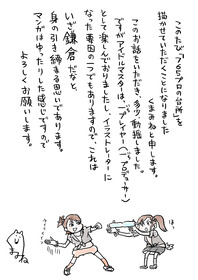 このたび「765プロの台所」を
描かせていただくことになりました
くまみねと申します。
このお話をいただき、多少動揺しました
ですがアイドルマスターは、一プレイヤー(プロデューサー)
として楽しんでおりましたし、イラストレーターに
なった要因の一つでもありますので、これは
いざ鎌倉だなと、
身の引き締まる思いであります。
マンガはゆったりした感じですので
よろしくお願いします。
くまみね